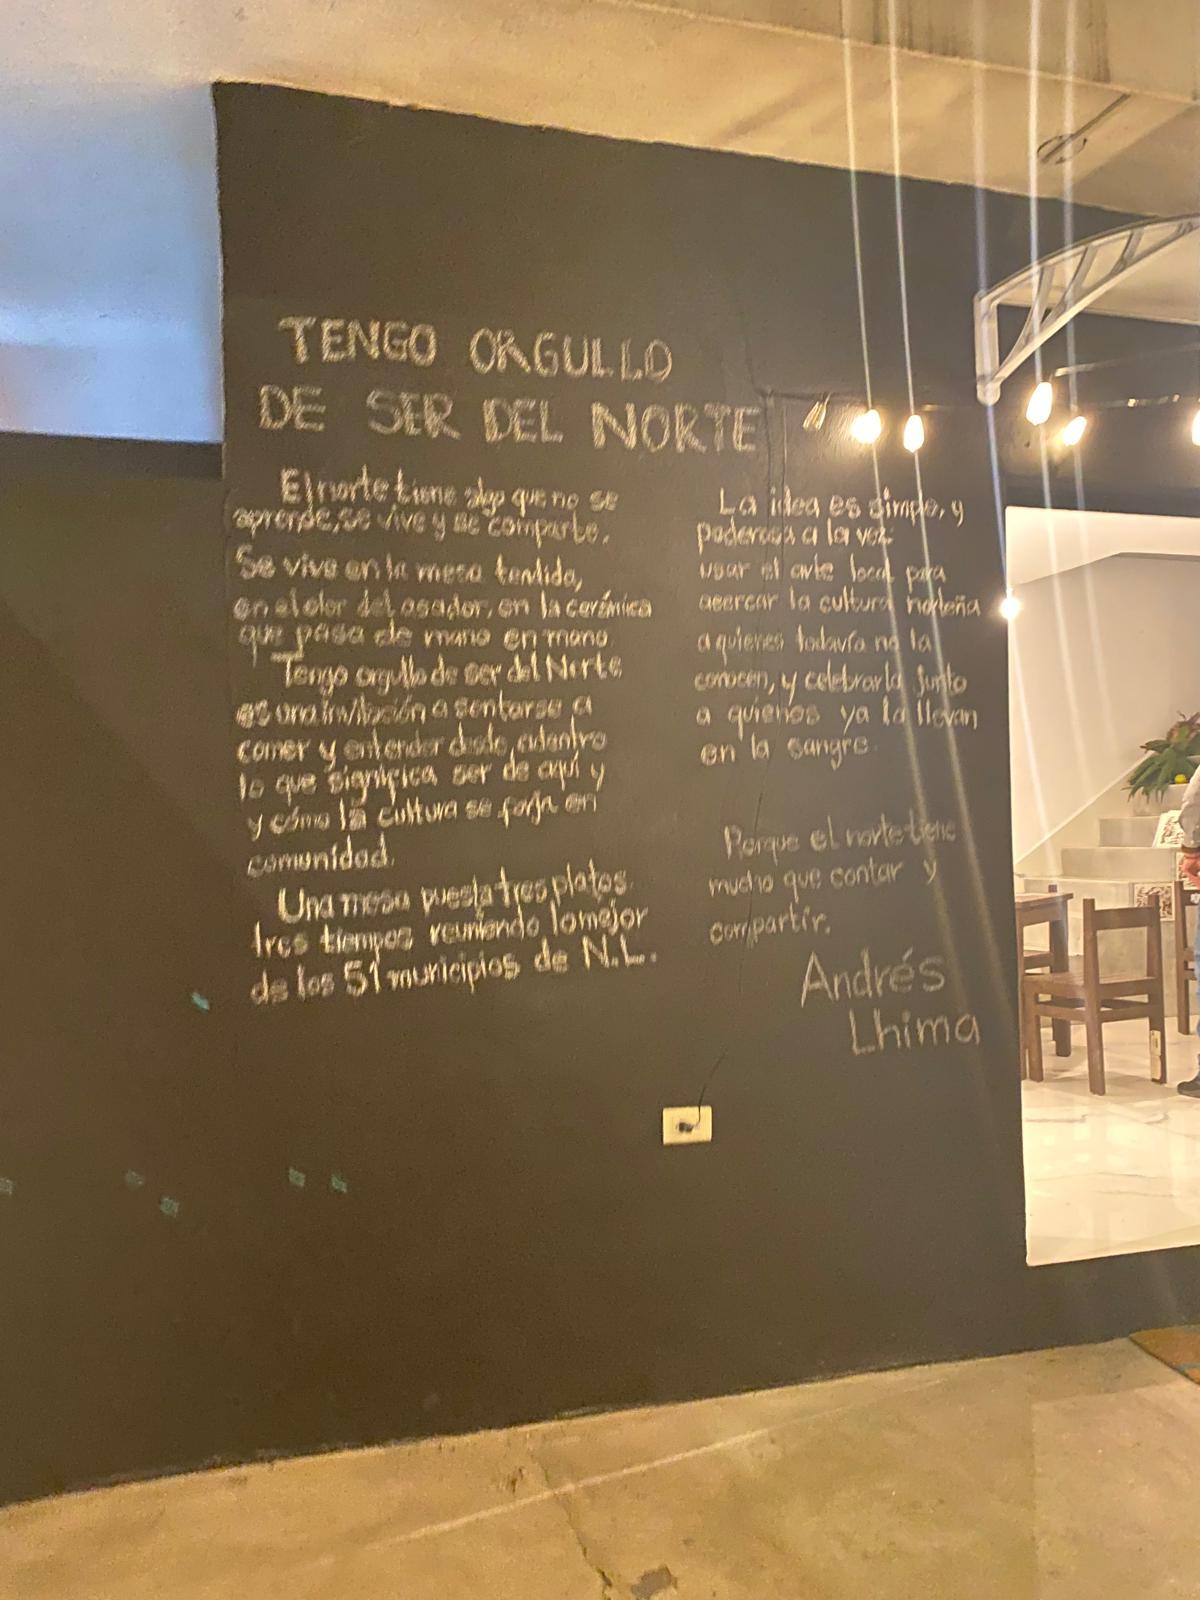 TENGO ORGULLO
DE SER DEL NORTE
El norte tiene algo que no se
aprende, se vive y se comparte.
Se vive en la mesa tendida,
en el olor del asador, en la cerámica
que pasa de mano en mano.
Tengo orgullo de ser del Norte
es una invitación a sentarse a
comer y entender desde adentro
lo que significa ser de aquí y
y cómo la cultura se forja en
comunidad.
Una mesa puesta tres platos.
tres tiempos reuniendo lo mejor
de los 51 municipios de N.L.
La idea es simple, y
poderosa a la vez:
usar el arte local para
acercar la cultura norteña
a quienes todavía no la
conocen, y celebrarla junto
a quienes ya la llevan
en la sangre.
Porque el norte tiene
mucho que contar y
compartir.
Andrés
Lhima